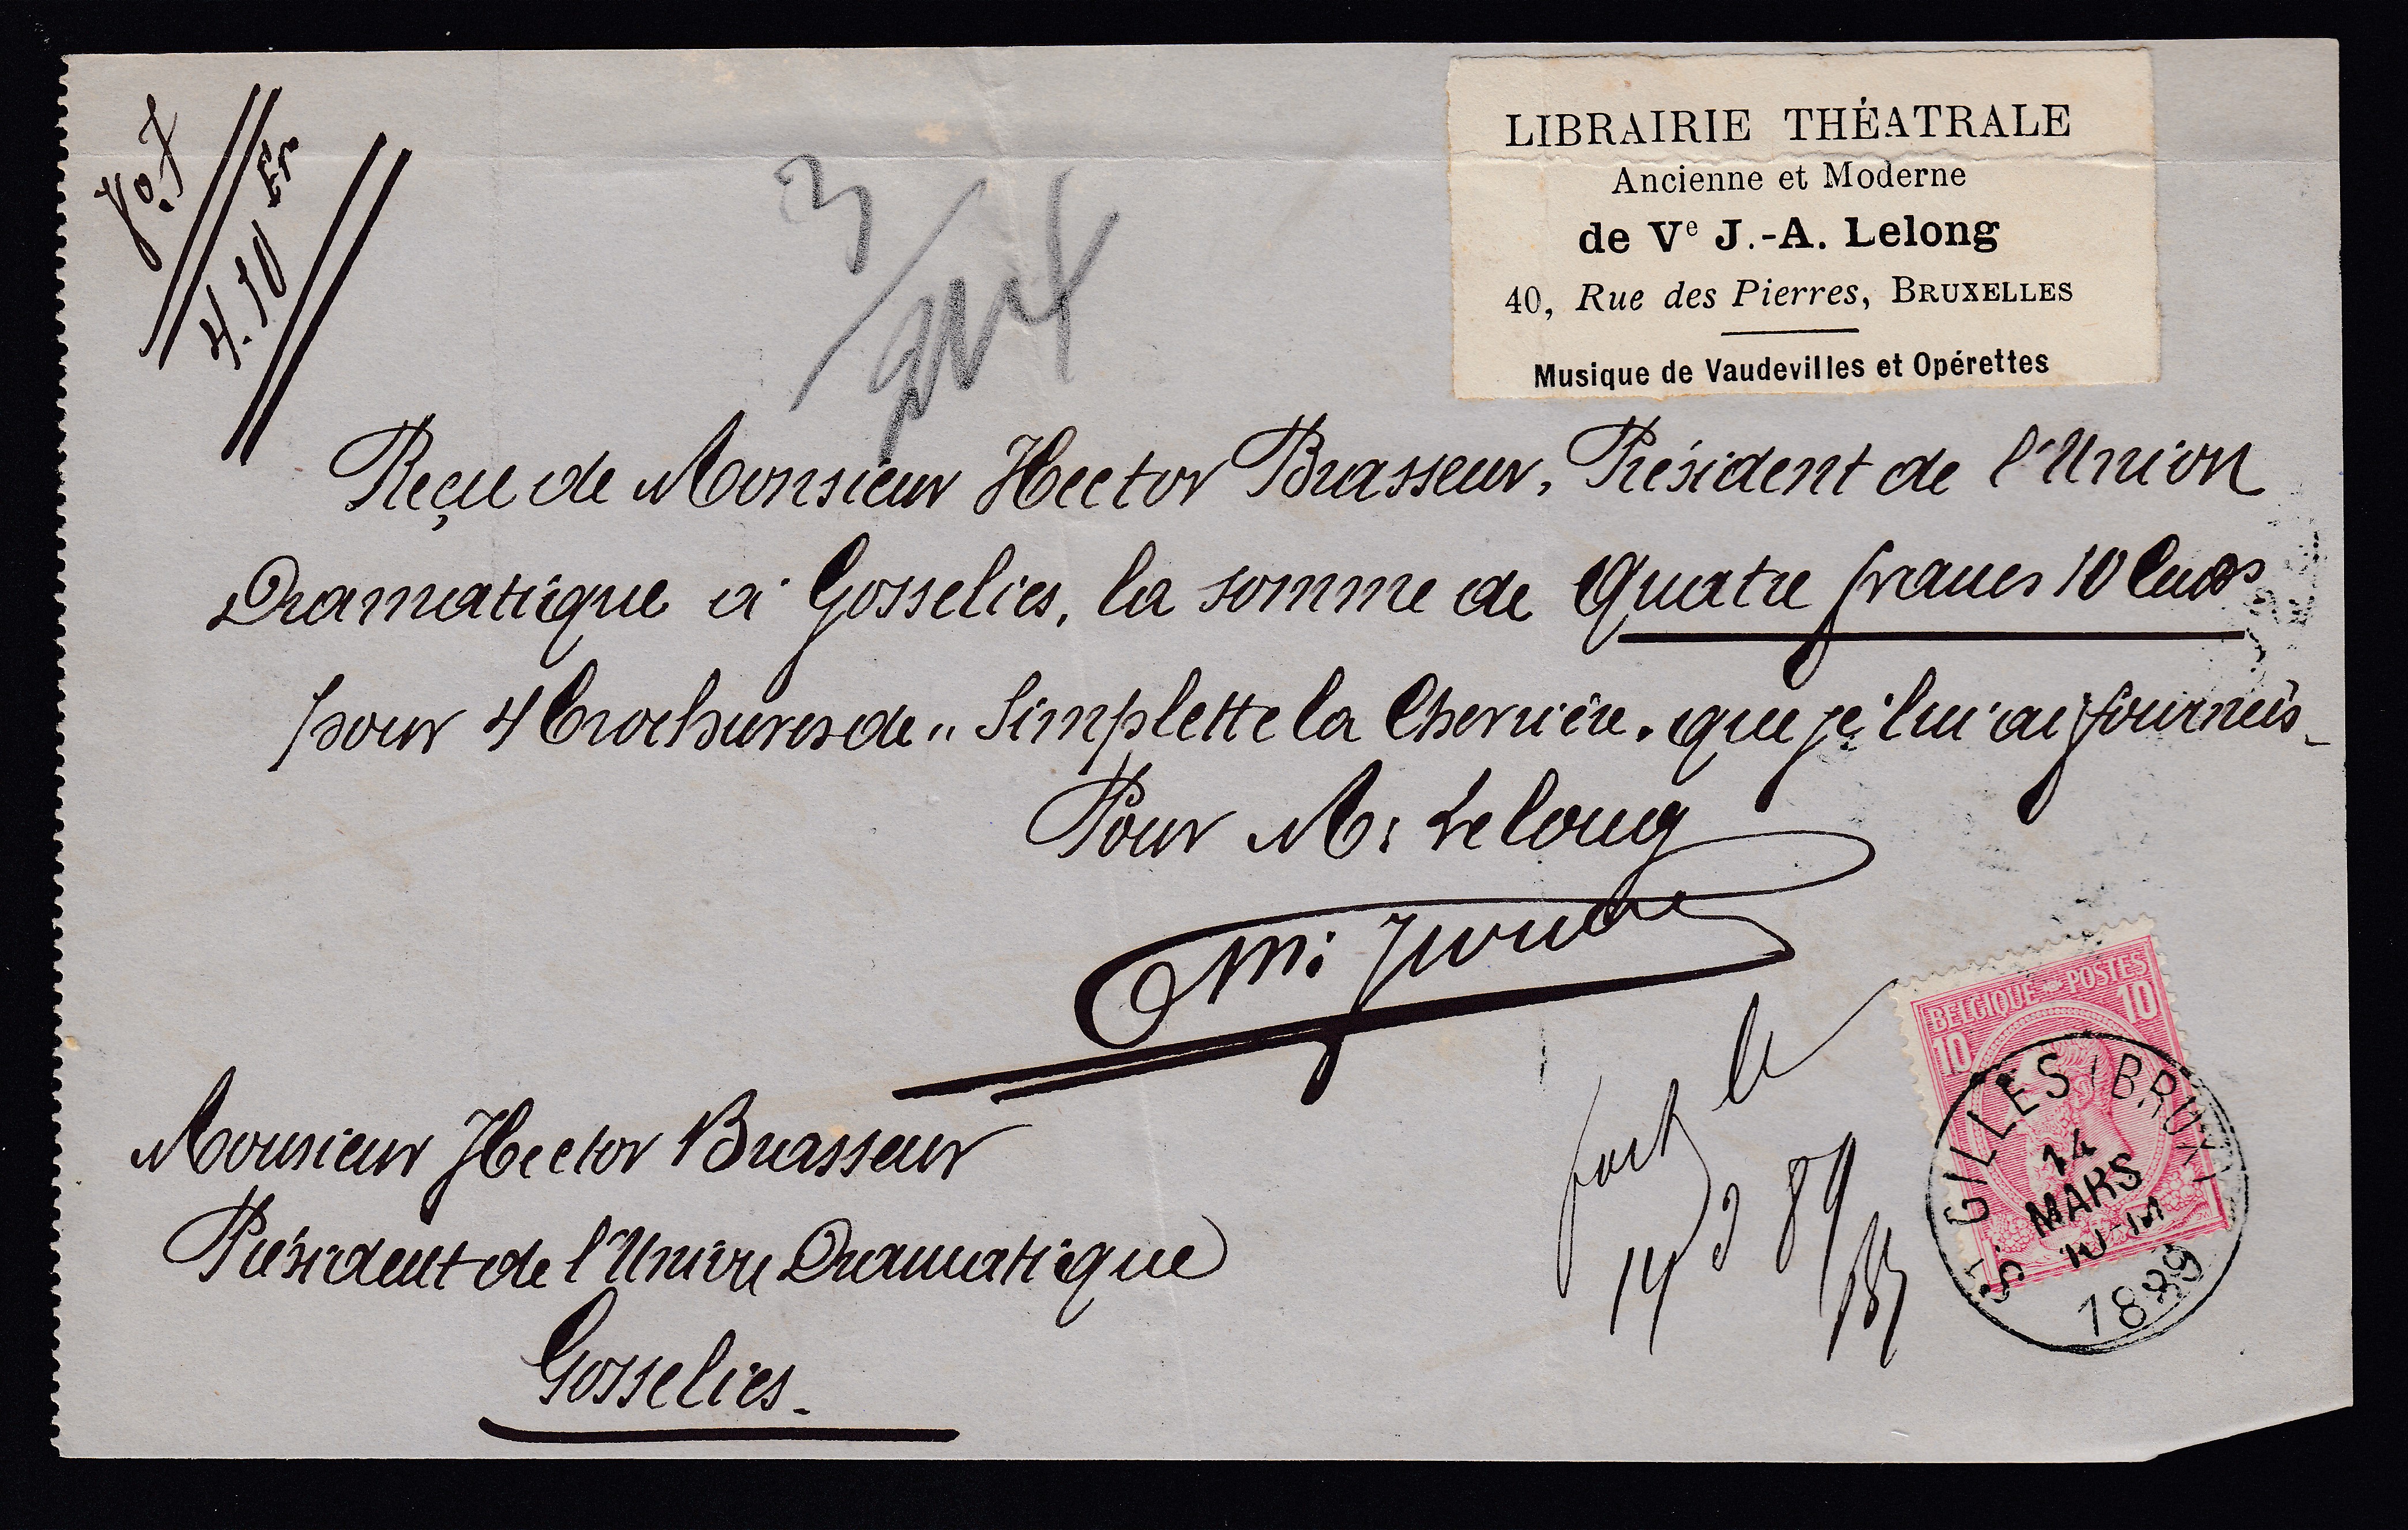 LIBRAIRIE THÉATRALE
Ancienne et Moderne
de Vᵉ J.-A. Lelong
40, Rue des Pierres, BRUXELLES
Musique de Vaudevilles et Opérettes
4.10
3
Reçu de Monsieur Hector Brasseur, Président de l'Union
Dramatique à Gosselies, la somme de Quatre francs 10 Cens
pour 4 brochures de „ Simplette la Chevrière. que je lui ai fournies
Pour Mr Lelong
BELGIQUE POSTES
10 10
ST GILLES (BRUX)
14
MARS
1889
le
14 3 89
Monsieur Hector Brasseur
Président de l'Union Dramatique
Gosselies.